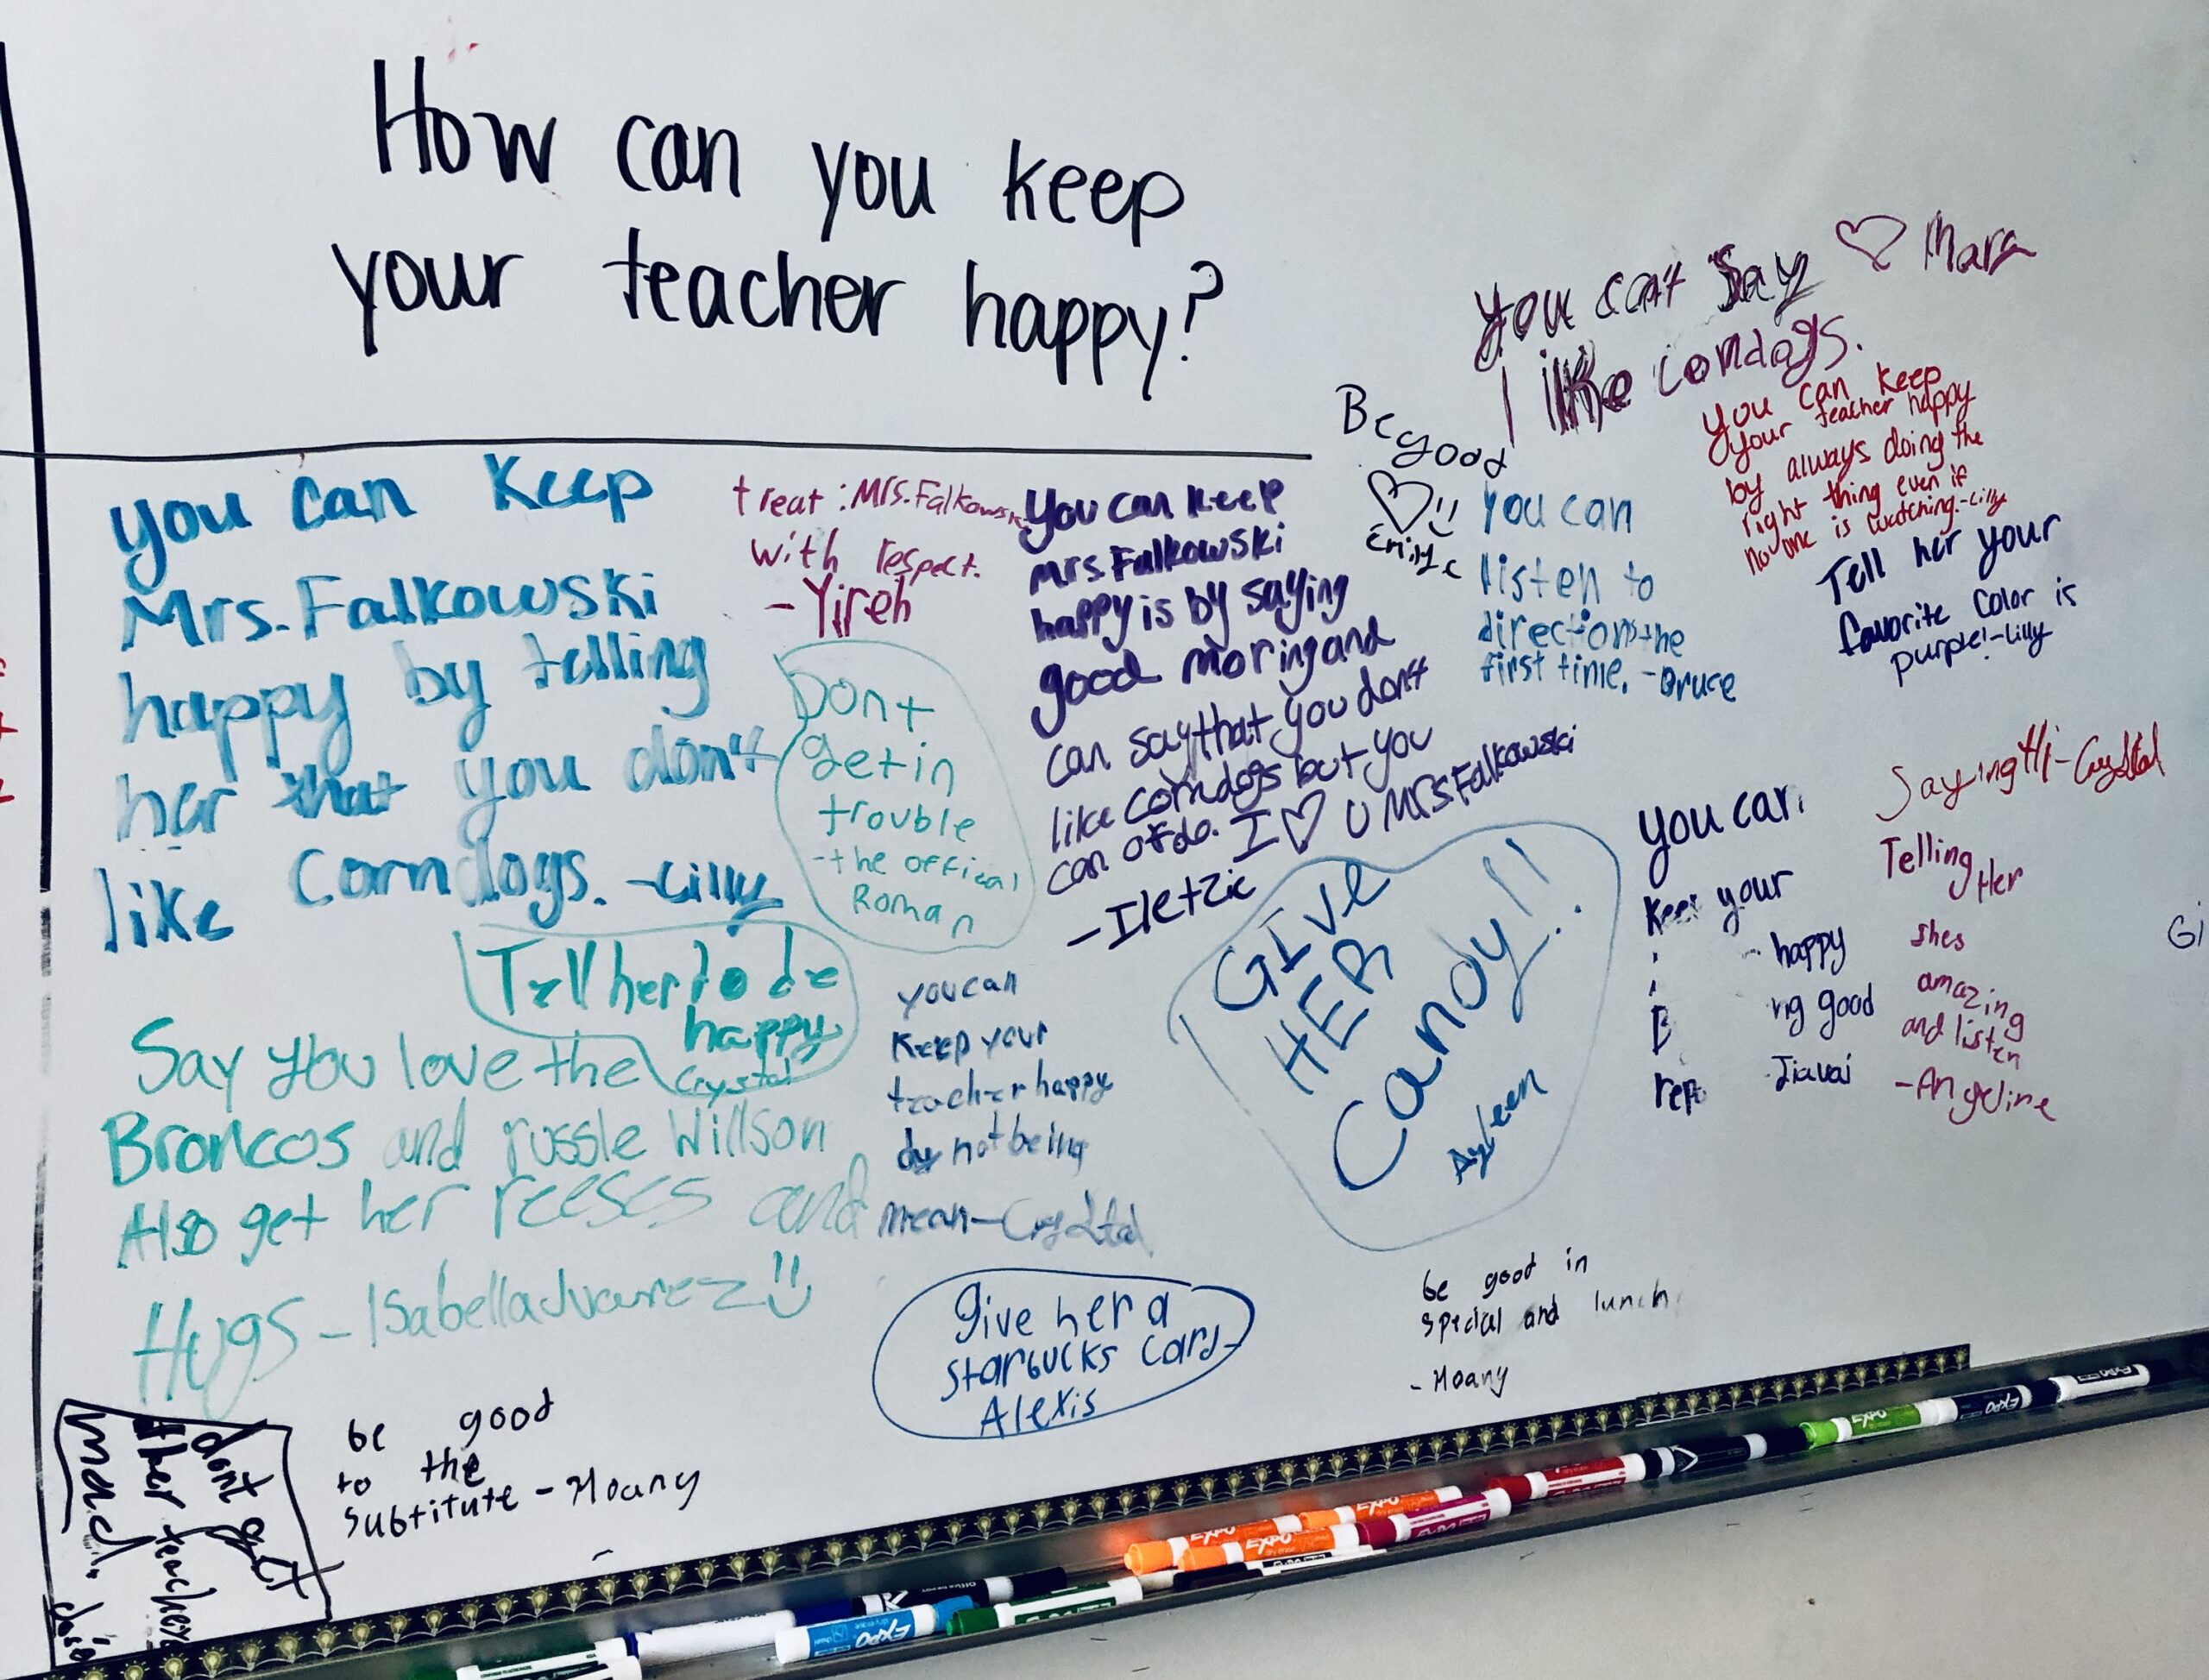 How can you keep
your teacher happy?
you can keep
Mrs. Falkowski
happy by telling
her that you don't
like Corndogs. -Lilly
treat : Mrs. Falkowski
with respect.
- Yireh
Dont
get in
trouble
- the offical
Roman
You can keep
Mrs Falkowski
happy is by saying
good moring and
can say that you don't
like corndogs but you
can of do. I ♡ U Mrs Falkowski
- Iletzic
Be good
Emily c
you can say ♡ Mara
I like corndogs.
you can keep
your teacher happy
by always doing the
right thing even if
no one is watching.-Lilly
you can
listen to
directions the
first time. - Bruce
Tell her your
favorite color is
purple!-Lilly
Tell her to be
happy
Crystal
Say you love the
Broncos and russle Willson
Also get her reeses and
Hugs - Isabella
you can
keep your
teacher happy
by not being
mean - Crystal
GIVE
HER
Candy!!
Ayleen
you can
keep your
happy
good
Saying Hi - Crystal
Telling Her
shes
amazing
and listen
- Angeline
Gi
give her a
starbucks card-
Alexis
be good in
special and lunch
- Hoany
be good
to the
substitute - Hoany
dont get
ther teacher
mad
EXPO
EXPO
EXPO
EXPO
EXPO
EXPO